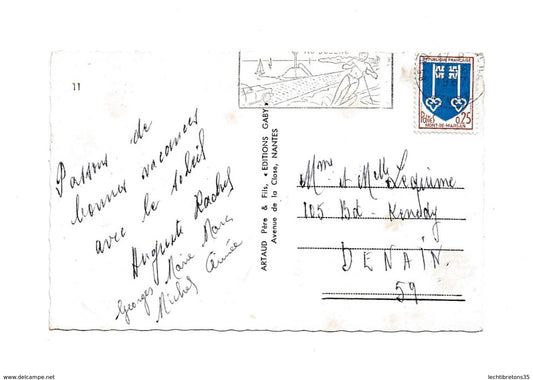 11
Passons de
bonnes vacances
avec le soleil
Auguste Rachel
Georges Marie Marc
Michel Aimée
ARTAUD Père & Fils, « EDITIONS GABY »
Avenue de la Close, NANTES
AU SOLEIL
REPUBLIQUE FRANÇAISE
Postes 0,25
MONT-DE-MARSAN
Mme et Melle Lequime
105 Bd - Kenedy
DENAIN.
59
www.delcampe.net
lechtibretons35